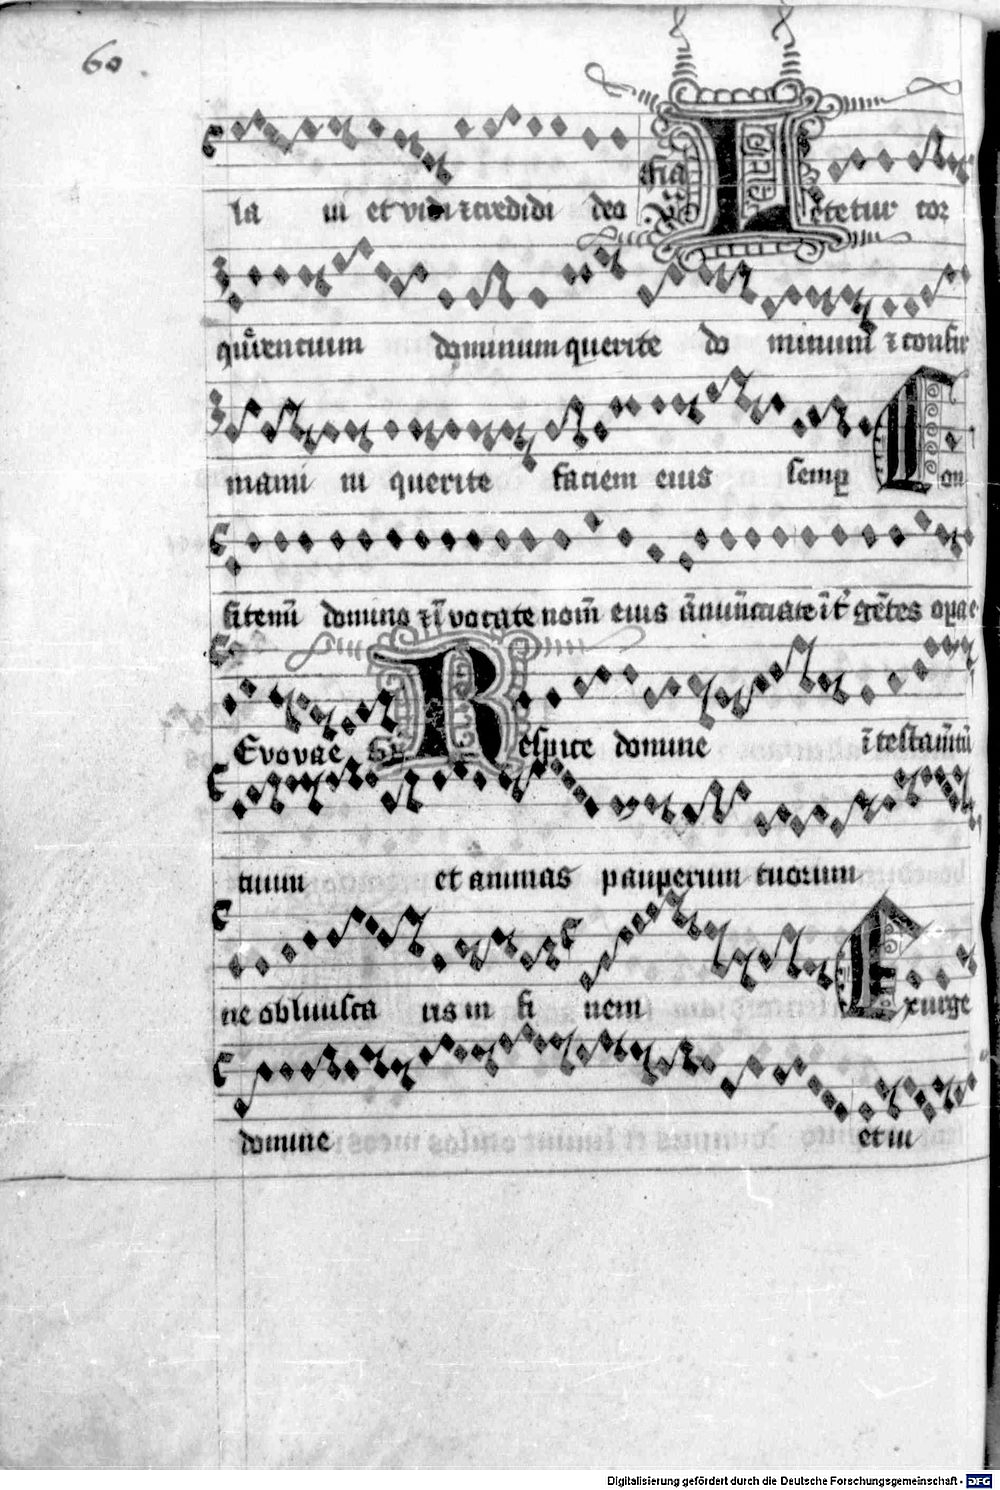 60.
la in et vidi et credidi deo fia Letetur cor
querentium dominum querite do minum et confir
mami ni querite faciem eius semp Con
fitemī domino et ī vocate nom̄ eius ānūn̄ciate īt' gētes opa e
Evovae Gr Respice domine ī testam̄tū
tuum et animas pauperum tuorum
ne obliuisca ris in fi nem Exurge
domine et iu
Digitalisierung gefördert durch die Deutsche Forschungsgemeinschaft - DFG